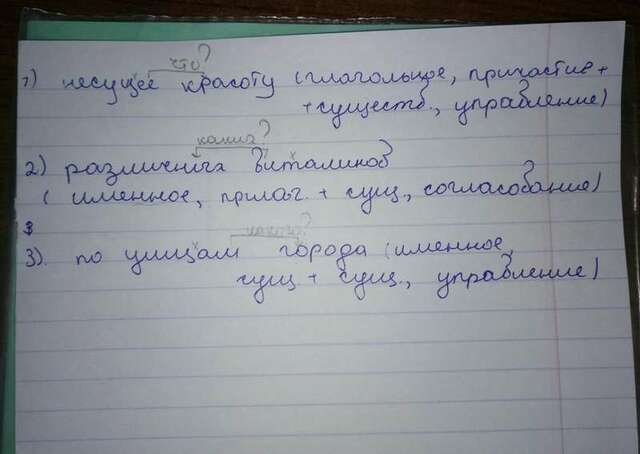 что?
1) несущее красоту (глагольное, причастие +
+ существ., управление)
каких?
2) различных витаминов
(именное, прилаг. + сущ., согласование)
какого?
3). по улицам города (именное,
сущ. + сущ., управление)